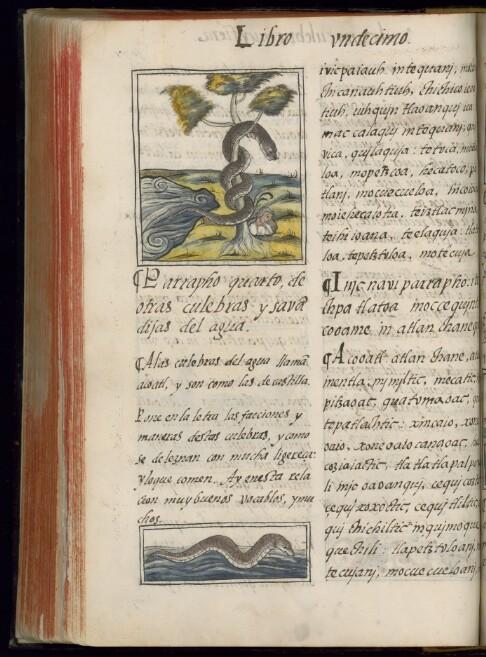 Libro vndecimo
¶Parrapho quarto, de
otras culebras, y sava
dijas del agua.
¶Alas culebras del agua llama
acoatl, y son como las de castilla.
Pone en la letra las facciones y
maneras destas culebras, y como
se deleznan con mucha ligereza:
y loque comen. Ay en esta rela
cion muy buenos vocablos, y mu
chos.
ivicpaiauh in tequanj,
chicanauhtiuh, chichico
tiuh, iuhqujn tlaoanquj
mac calaquj in tequanj,
vica, qujlaquja: tetvia,
loa, mopetzcoa, hecatoco,
tlanj, mocuecueloa, hicoio
moiehecaiotia, teiztlacmjna,
teihiioana, teelaquja:
loa, tepetztvloa, motecuja
¶Injc navi parrapho:
chpa tlatoa in oc cequjnt
cooame in atlan chaneque
¶Acooatl atlan chane,
mentla, mjmjltic, mecatic,
pitzaoac, quatvmaoac,
tepatlachtic: xincaio,
oaio, xoneoaio canaoac,
coziaiactic, tlatlatlapalpo
li injc oaoanquj, cequj coz
cequj xoxoctic, cequj tliltic,
quj chichiltic in qujmoque
quechili: tlapetztvloanj,
tecujanj, mocuecueloanj,